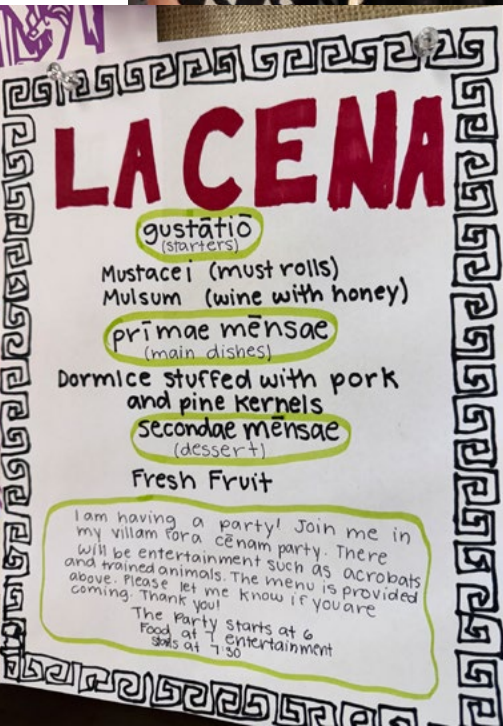 LA CENA
gustātiō
(starters)
Mustacei (must rolls)
Mulsum (wine with honey)
prīmae mēnsae
(main dishes)
Dormice stuffed with pork
and pine kernels
secondae mēnsae
(dessert)
Fresh Fruit
I am having a party! Join me in
my villam for a cēnam party. There
will be entertainment such as acrobats
and trained animals. The menu is provided
above. Please let me know if you are
coming. Thank you!
The Party starts at 6
Food at 7 entertainment
starts at 7:30